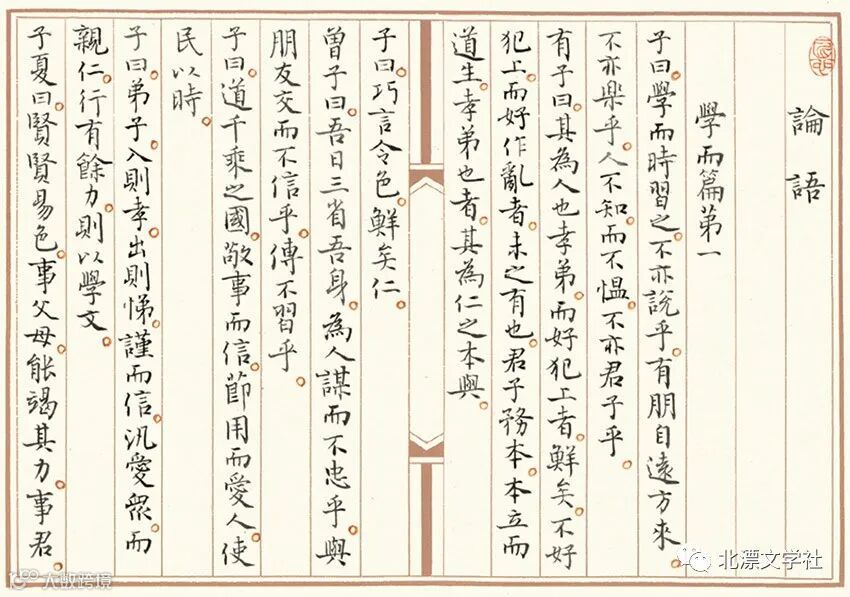 論語
學而篇第一
子曰。學而時習之。不亦說乎。有朋自遠方來。
不亦樂乎。人不知而不愠。不亦君子乎。
有子曰。其為人也孝弟。而好犯上者。鮮矣。不好
犯上而好作亂者。未之有也。君子務本。本立而
道生。孝弟也者。其為仁之本與。
子曰。巧言令色。鮮矣仁。
曾子曰。吾日三省吾身。為人謀而不忠乎。與
朋友交而不信乎。傳不習乎。
子曰。道千乘之國。敬事而信。節用而愛人。使
民以時。
子曰。弟子入則孝。出則悌。謹而信。汎愛眾。而
親仁。行有餘力。則以學文。
子夏曰。賢賢易色。事父母。能竭其力。事君。
北漂文学社
大数跨境